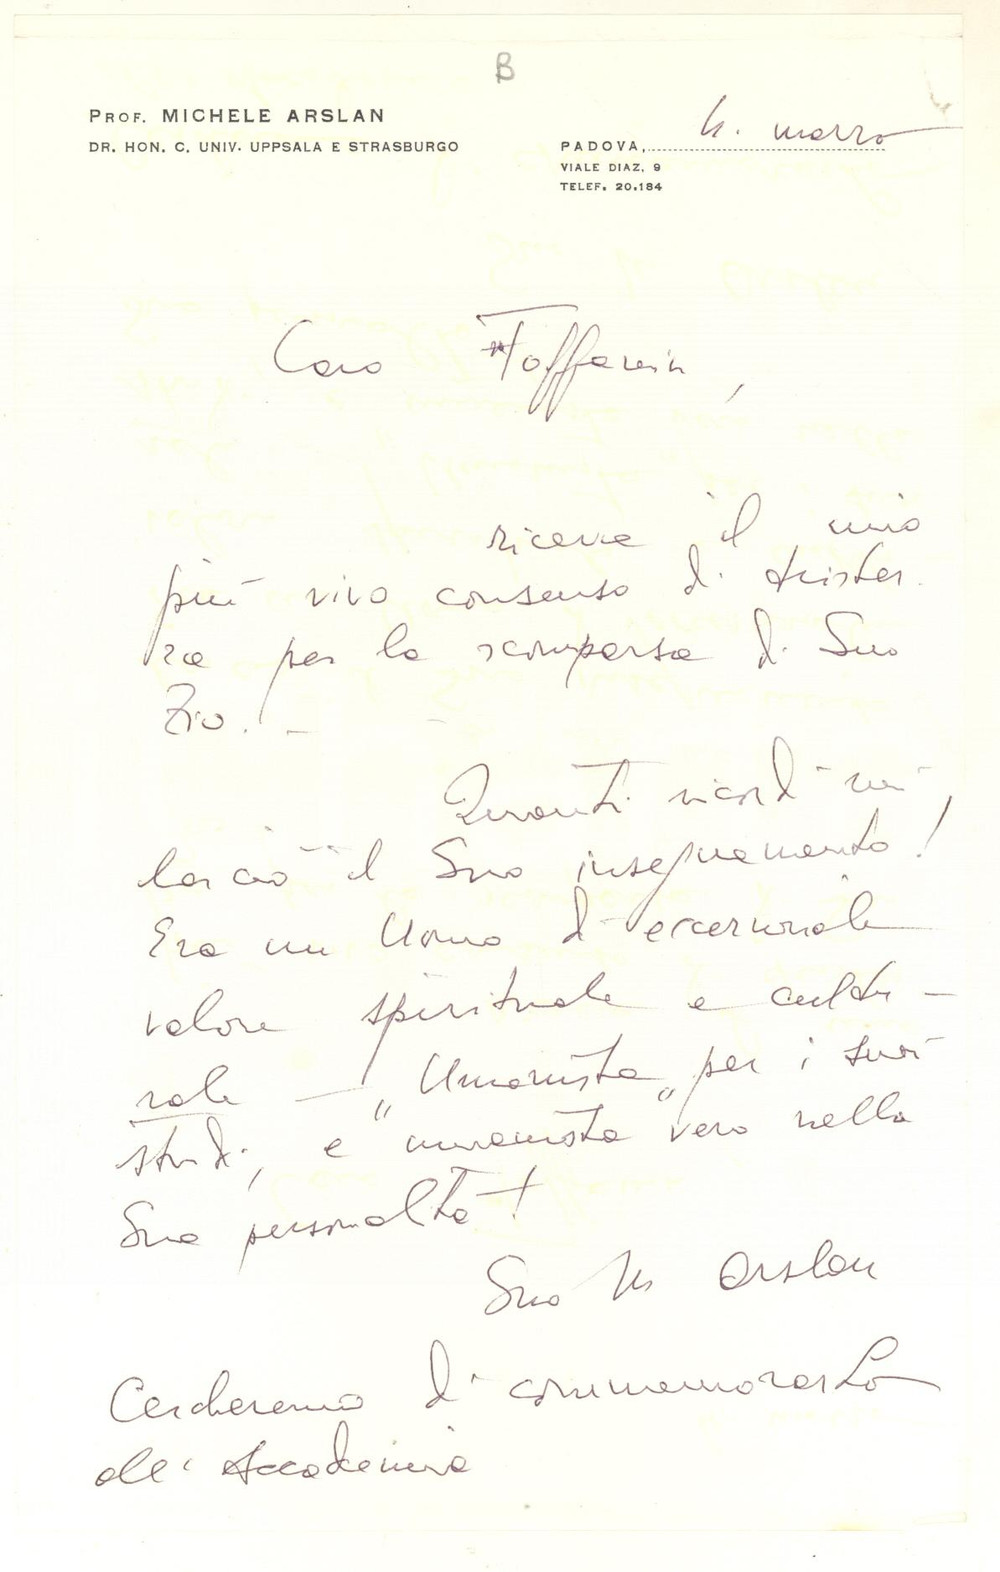 B
PROF. MICHELE ARSLAN
DR. HON. C. UNIV. UPPSALA E STRASBURGO
PADOVA, 4. marzo
VIALE DIAZ, 9
TELEF. 20.184
Caro Toffanin,
riceva il mio
più vivo consenso di tristez.
za per la scomparsa di Suo
Zio. –
Quanti ricordi mi
lasciò il Suo insegnamento!
Era un Uomo di eccezionale
valore spirituale e cultu –
rale – „Umanista„ per i suoi
studi, e umanista vero nella
Sua personalità!
Suo M Arslan
Cercheremo di commemorarLo
all' Accademia